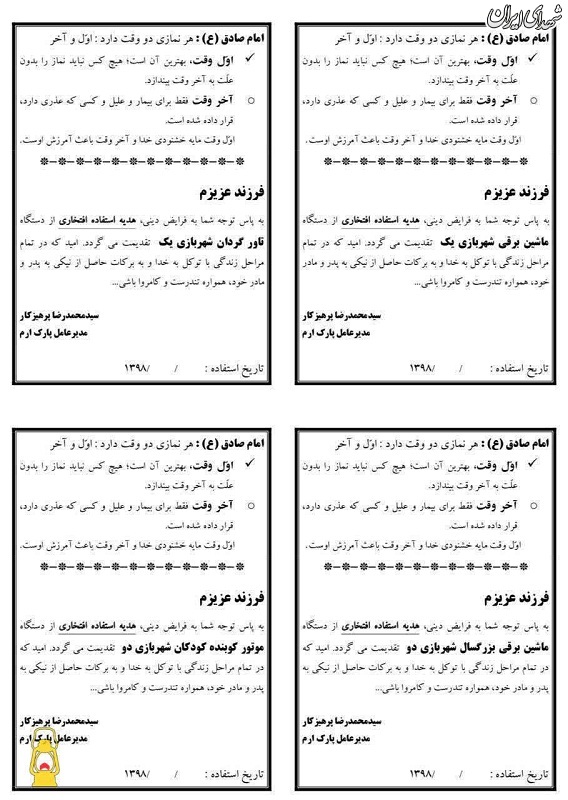 شهدای ایران
امام صادق (ع) : هر نمازی دو وقت دارد : اوّل و آخر
✓ اوّل وقت، بهترین آن است؛ هیچ کس نباید نماز را بدون
علّت به آخر وقت بیندازد.
○ آخر وقت فقط برای بیمار و علیل و کسی که عذری دارد،
قرار داده شده است.
اوّل وقت مایه خشنودی خدا و آخر وقت باعث آمرزش اوست.
فرزند عزیزم
به پاس توجه شما به فرایض دینی، هدیه استفاده افتخاری از دستگاه
ماشین برقی شهربازی یک تقدیمت می گردد. امید که در تمام
مراحل زندگی با توکل به خدا و به برکات حاصل از نیکی به پدر و مادر
خود، همواره تندرست و کامروا باشی...
سیدمحمدرضا پرهیزکار
مدیرعامل پارک ارم
تاریخ استفاده : / /۱۳۹۸
امام صادق (ع) : هر نمازی دو وقت دارد : اوّل و آخر
✓ اوّل وقت، بهترین آن است؛ هیچ کس نباید نماز را بدون
علّت به آخر وقت بیندازد.
○ آخر وقت فقط برای بیمار و علیل و کسی که عذری دارد،
قرار داده شده است.
اوّل وقت مایه خشنودی خدا و آخر وقت باعث آمرزش اوست.
فرزند عزیزم
به پاس توجه شما به فرایض دینی، هدیه استفاده افتخاری از دستگاه
تاور گردان شهربازی یک تقدیمت می گردد. امید که در تمام
مراحل زندگی با توکل به خدا و به برکات حاصل از نیکی به پدر و
مادر خود، همواره تندرست و کامروا باشی...
سیدمحمدرضا پرهیزکار
مدیرعامل پارک ارم
تاریخ استفاده : / /۱۳۹۸
امام صادق (ع) : هر نمازی دو وقت دارد : اوّل و آخر
✓ اوّل وقت، بهترین آن است؛ هیچ کس نباید نماز را بدون
علّت به آخر وقت بیندازد.
○ آخر وقت فقط برای بیمار و علیل و کسی که عذری دارد،
قرار داده شده است.
اوّل وقت مایه خشنودی خدا و آخر وقت باعث آمرزش اوست.
فرزند عزیزم
به پاس توجه شما به فرایض دینی، هدیه استفاده افتخاری از دستگاه
ماشین برقی بزرگسال شهربازی دو تقدیمت می گردد. امید که
در تمام مراحل زندگی با توکل به خدا و به برکات حاصل از نیکی به
پدر و مادر خود، همواره تندرست و کامروا باشی...
سیدمحمدرضا پرهیزکار
مدیرعامل پارک ارم
تاریخ استفاده : / /۱۳۹۸
امام صادق (ع) : هر نمازی دو وقت دارد : اوّل و آخر
✓ اوّل وقت، بهترین آن است؛ هیچ کس نباید نماز را بدون
علّت به آخر وقت بیندازد.
○ آخر وقت فقط برای بیمار و علیل و کسی که عذری دارد،
قرار داده شده است.
اوّل وقت مایه خشنودی خدا و آخر وقت باعث آمرزش اوست.
فرزند عزیزم
به پاس توجه شما به فرایض دینی، هدیه استفاده افتخاری از دستگاه
موتور کوبنده کودکان شهربازی دو تقدیمت می گردد. امید که
در تمام مراحل زندگی با توکل به خدا و به برکات حاصل از نیکی به
پدر و مادر خود، همواره تندرست و کامروا باشی...
سیدمحمدرضا پرهیزکار
مدیرعامل پارک ارم
تاریخ استفاده : / /۱۳۹۸